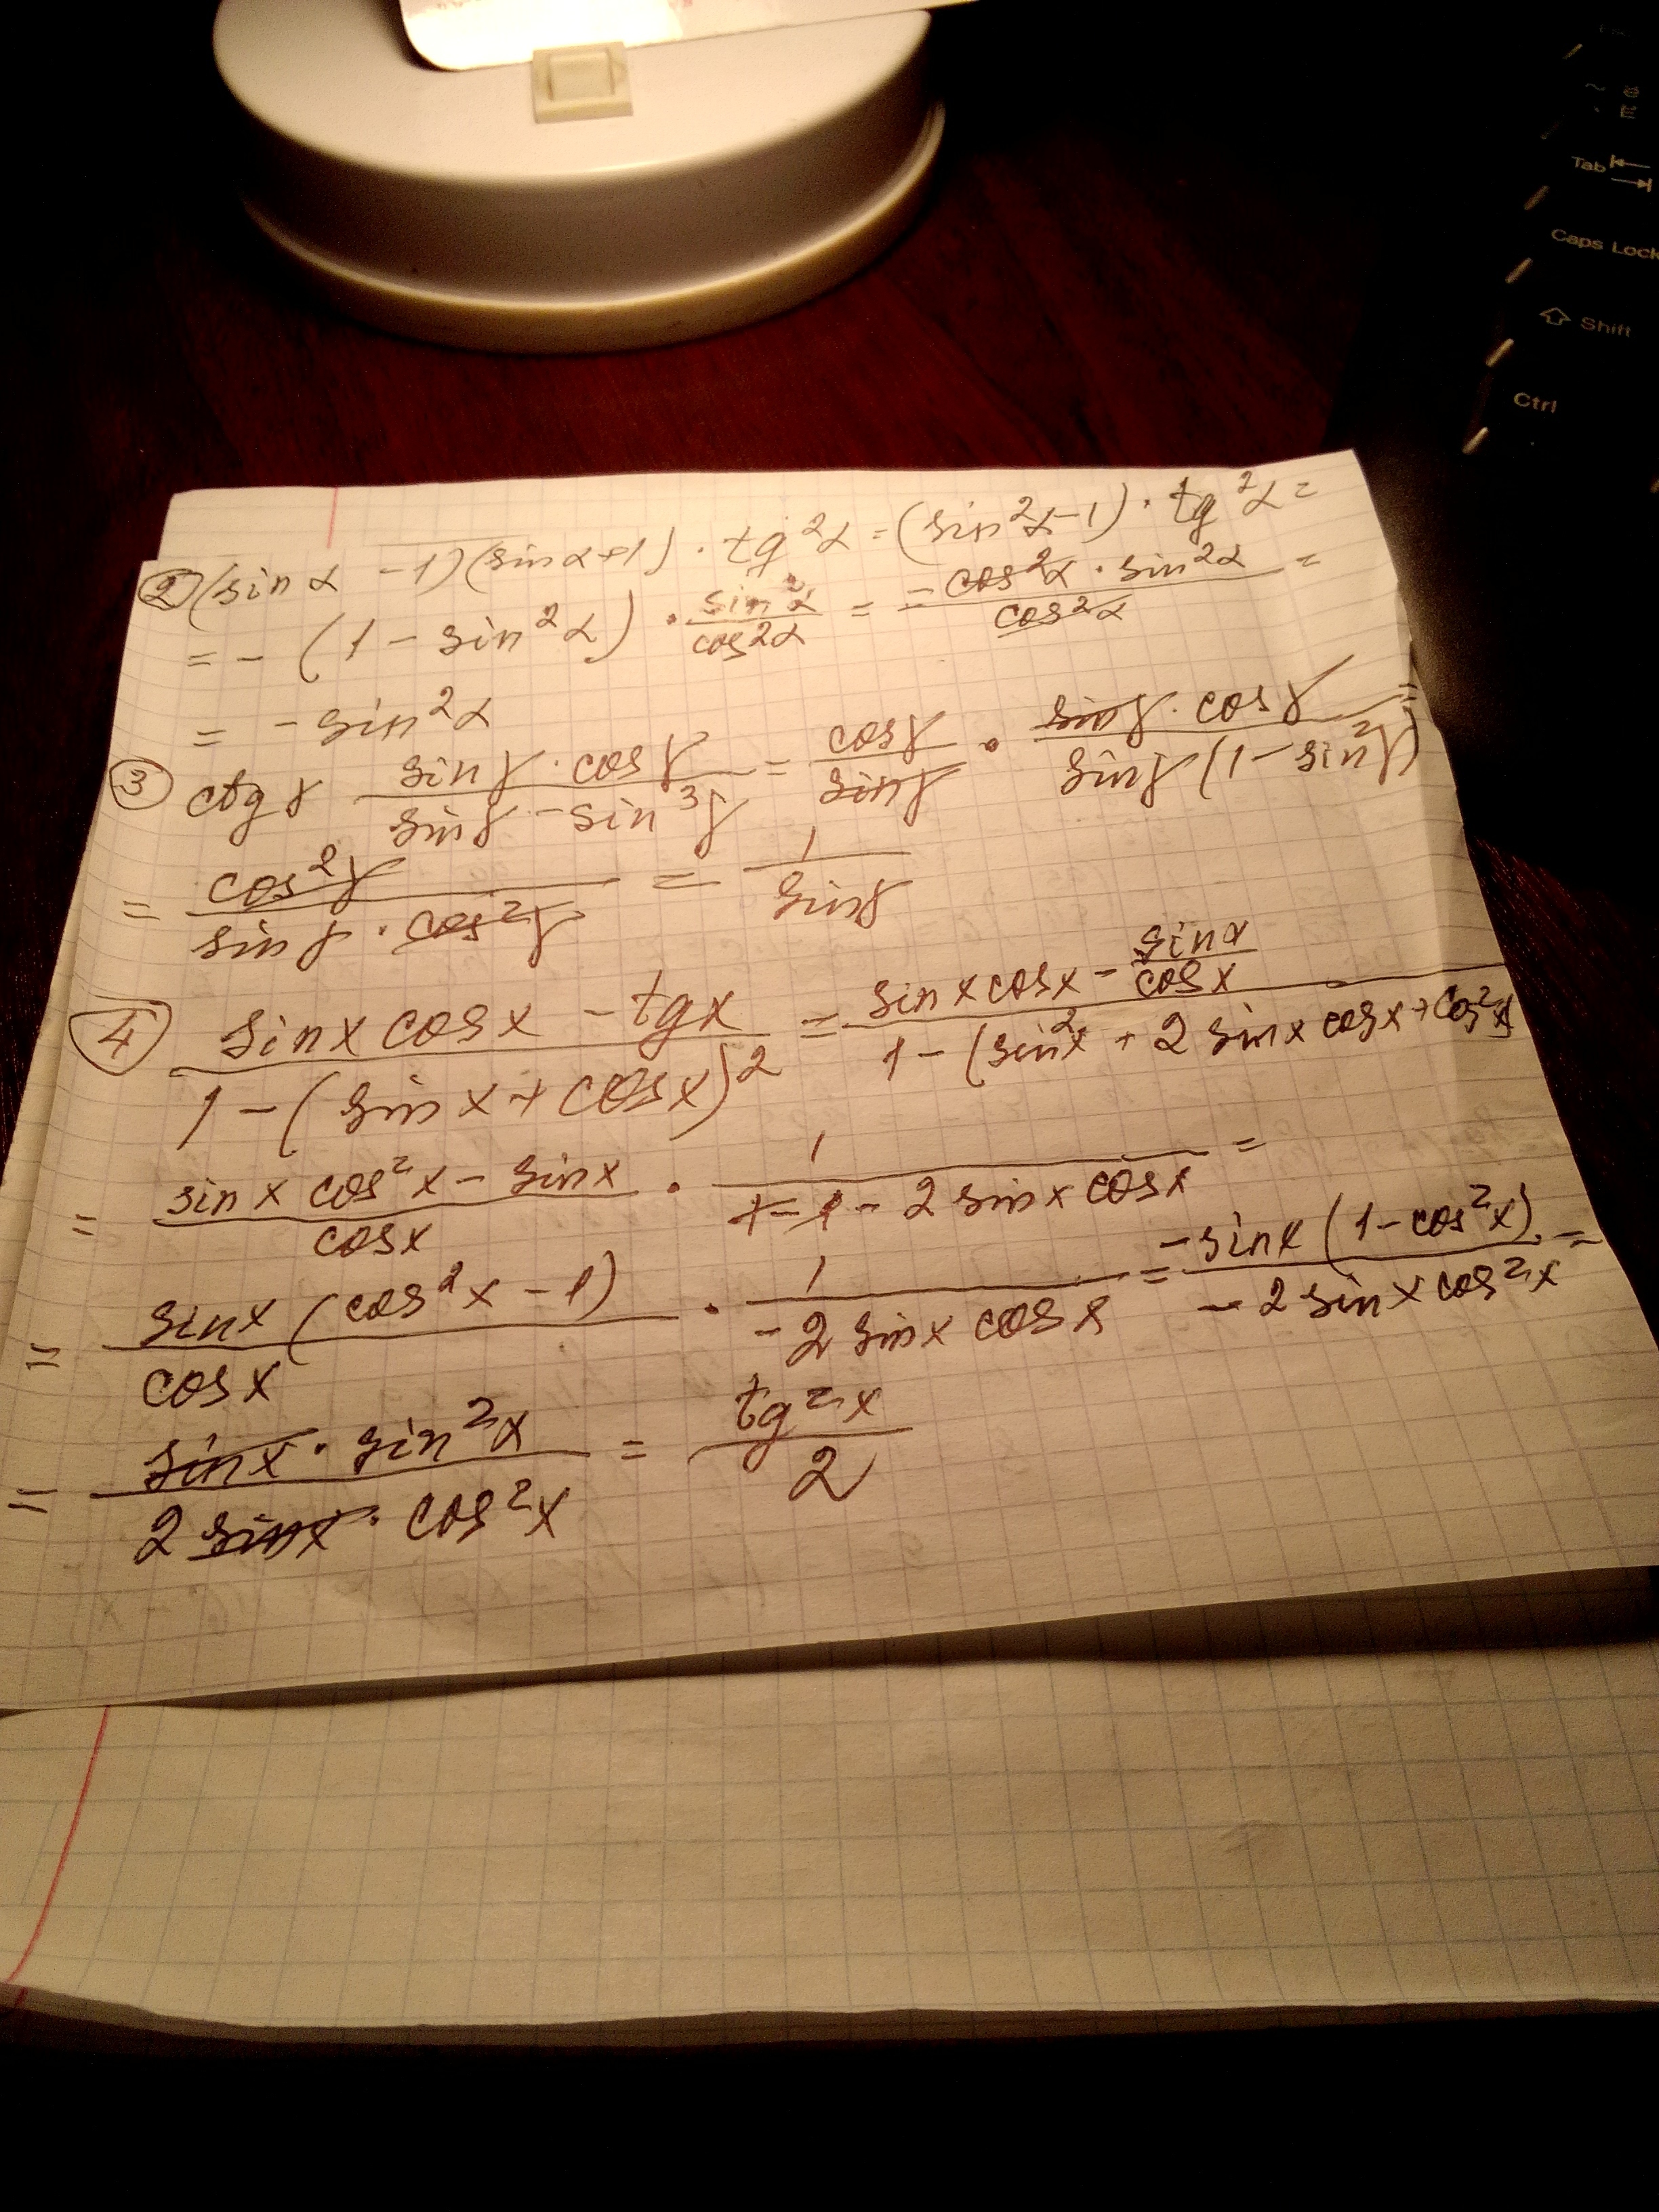 Tab
Caps Lock
Shift
Ctrl
② (sin α - 1)(sin α + 1) · tg²α = (sin²α - 1) · tg²α =
= - (1 - sin²α) · sin²α / cos²α = -cos²α · sin²α / cos²α =
= - sin²α
③ ctg γ sin γ · cos γ / sin γ - sin³γ = cos γ / sin γ · sin γ · cos γ / sin γ (1 - sin²γ) =
= cos²γ / sin γ · cos²γ = 1 / sin γ
④ sin x cos x - tg x / 1 - (sin x + cos x)² = sin x cos x - sin x / cos x / 1 - (sin²x + 2 sin x cos x + cos²x)
= sin x cos²x - sin x / cos x · 1 / 1 - 1 - 2 sin x cos x =
= sin x (cos²x - 1) / cos x · 1 / -2 sin x cos x = -sin x (1 - cos²x) / -2 sin x cos²x =
= sin x · sin²x / 2 sin x · cos²x = tg²x / 2